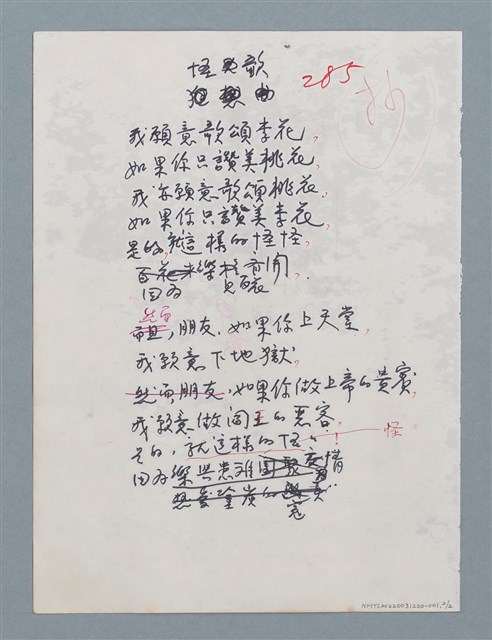 怪歌
狂想曲
285
抄
我願意歌頌李花,
如果你只讚美桃花,
我亦願意歌頌桃花,
如果你只讚美李花,
是的,就這樣的怪怪,
百花
因為
然而
而且,朋友,如果你上天堂,
我願意下地獄,
然而朋友,如果你做上帝的貴賓,
我願意做閻王的惡客,
是的,就這樣的怪!
怪
因為樂與患難
塗炭的
NMTL20220031220-001.2/2